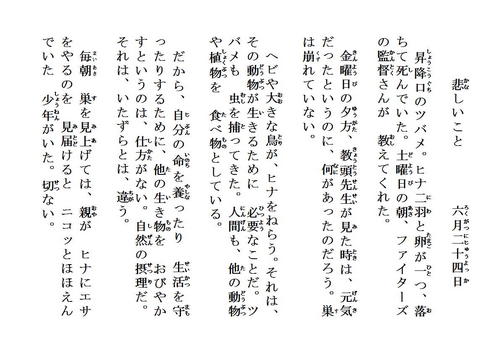 悲しいこと　　六月二十四日
昇降口のツバメ。ヒナ二羽と卵が一つ、落
ちて死んでいた。土曜日の朝、ファイターズ
の監督さんが　教えてくれた。
金曜日の夕方、教頭先生が見た時は、元気
だったというのに、何があったのだろう。巣
は崩れていない。
ヘビや大きな鳥が、ヒナをねらう。それは、
その動物が生きるために　必要なことだ。ツ
バメも　虫を捕ってきた。人間も、他の動物
や植物を　食べ物としている。
だから、自分の命を養ったり　生活を守
ったりするために、他の生き物を　おびやか
すというのは、仕方がない。自然の摂理だ。
それは、いたずらとは、違う。
毎朝　巣を見上げては、親が　ヒナにエサ
をやるのを　見届けると　ニコッとほほえん
でいた　少年がいた。切ない。